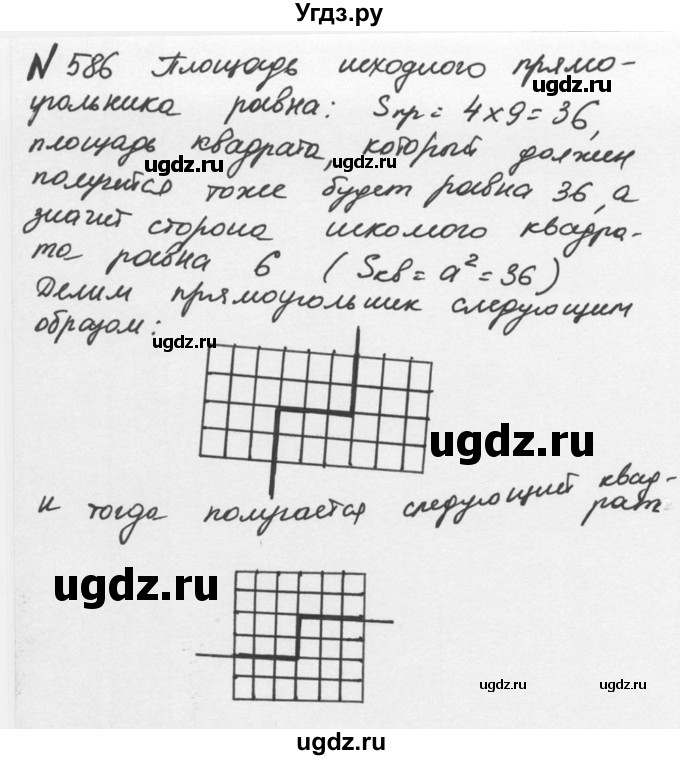 Угдз.ру
N 586 Площадь исходного прямо-
угольника равна: Sпр = 4 x 9 = 36,
площадь квадрата, который должен
ugdz.ru ugdz.ru
получится тоже будет равна 36, а
значит сторона искомого квадра-
та равна 6 (Sкв = a² = 36)
Делим прямоугольник следующим
образом:
ugdz.ru
ugdz.ru
и тогда получается следующий квад-
рат
ugdz.ru
ugdz.ru ugdz.ru
ugdz.ru